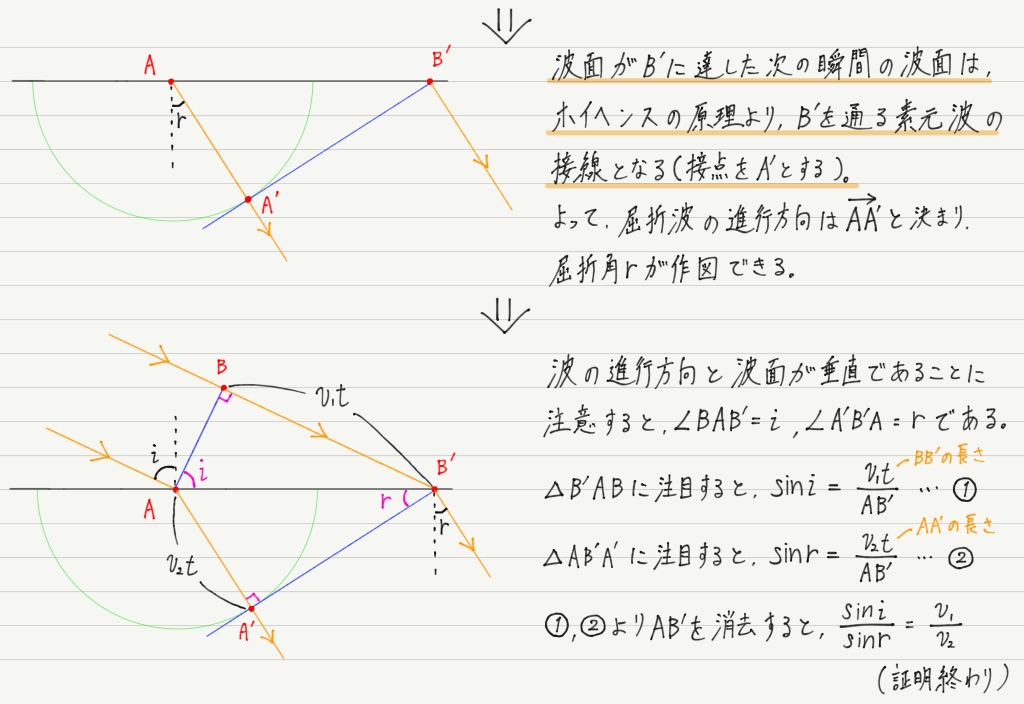 ⇓
A
B′
r
A′
波面がB′に達した次の瞬間の波面は,
ホイヘンスの原理より, B′を通る素元波の
接線となる(接点をA′とする)。
よって, 屈折波の進行方向は AA′ と決まり,
屈折角rが作図できる。
⇓
B
v₁t
i
i
A
B′
r
r
v₂t
A′
波の進行方向と波面が垂直であることに
注意すると, ∠BAB′=i, ∠A′B′A=r である。
BB′の長さ
△B′ABに注目すると, sin i = v₁t/AB′ … ①
AA′の長さ
△AB′A′に注目すると, sin r = v₂t/AB′ … ②
①,②よりAB′を消去すると, sin i/sin r = v₁/v₂
(証明終わり)